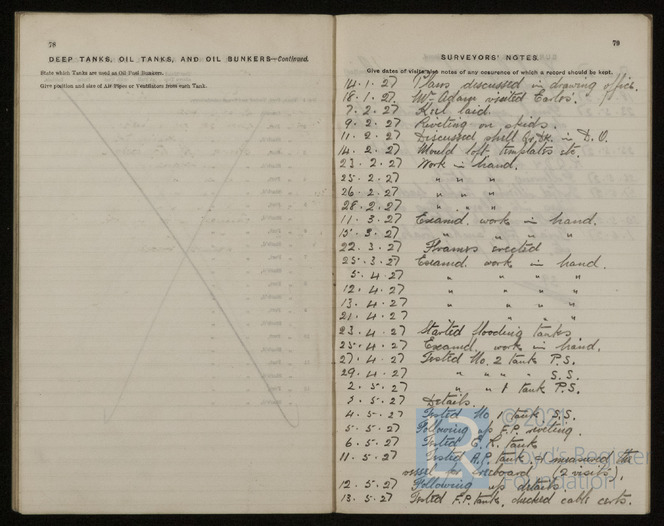 78
DEEP TANKS, OIL TANKS, AND OIL BUNKERS—Continued.
State which Tanks are used as Oil Fuel Bunkers.
Give position and size of Air Pipes or Ventilators from each Tank.
79
SURVEYORS' NOTES.
Give dates of visits also notes of any occurence of which a record should be kept.
14.1.27 Plans discussed in drawing office.
18.1.27 Mr Adam visited
7.2.27 Keel laid.
9.2.27 Riveting on skids.
11.2.27 Discussed shell & dk. in D.O.
14.2.27 Mould loft, templates etc.
23.2.27 Work in hand.
25.2.27 " " "
26.2.27 " " "
28.2.27 " " "
11.3.27 Examd. work in hand.
15.3.27 " " " "
22.3.27 Frames erected
25.3.27 Examd. work in hand.
5.4.27 " " " "
12.4.27 " " " "
13.4.27 " " " "
21.4.27 " " " "
23.4.27 Started flooding tanks
25.4.27 Examd. work in hand.
27.4.27 Tested No. 2 tank P.S.
29.4.27 " " " S.S.
2.5.27 " " 1 tank P.S.
3.5.27 Details.
4.5.27 Tested No 1 tank S.S.
5.5.27 Following up F.P. riveting.
6.5.27 Tested E.R. tank
11.5.27 Tested A.P. tank & measured the
vessel for freeboard (2 visits).
12.5.27 Following up details
13.5.27 Tested F.P. tank, checked cable certs.
LR
© 2021
Lloyd's Register
Foundation